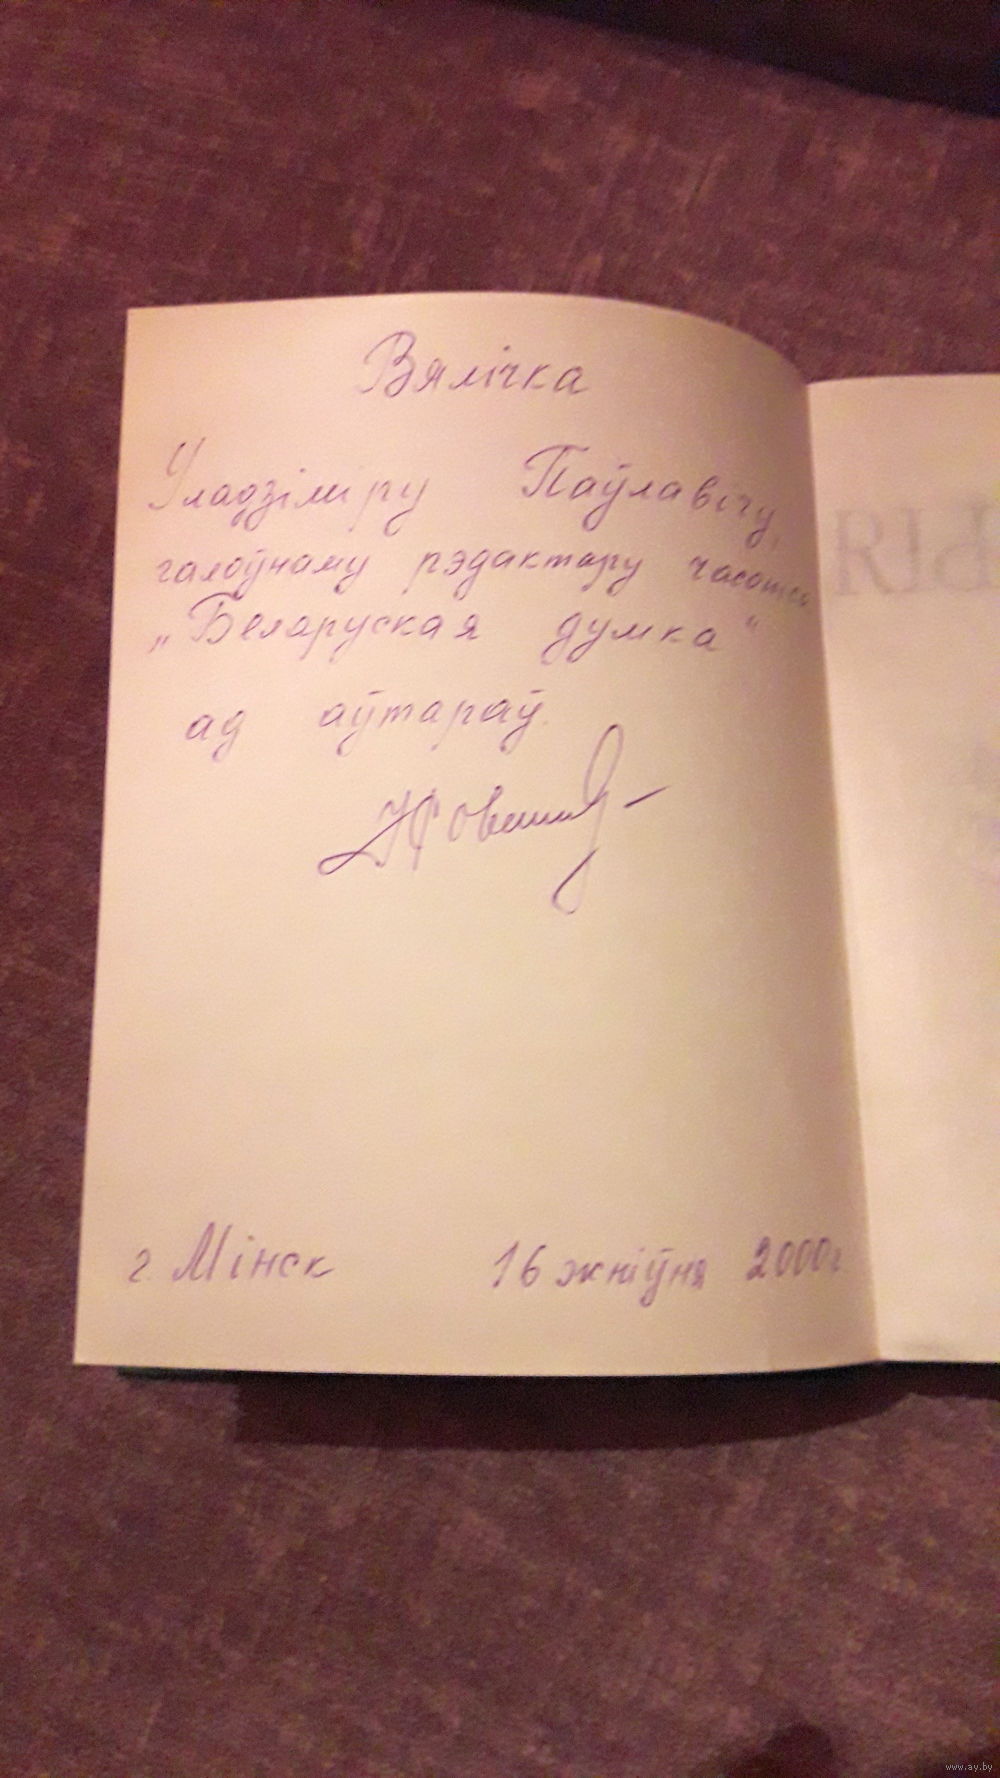 Вялічка
Уладзіміру Паўлавічу,
галоўнаму рэдактару часопіса
„Беларуская думка“
ад аўтараў.
г. Мінск 16 жніўня 2000г
www.ay.by